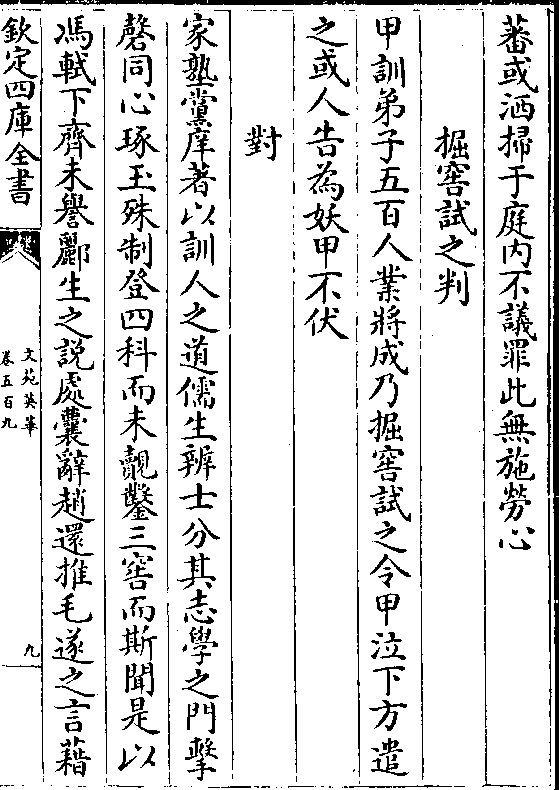 蕃或洒掃于庭内不議罪此無施勞心
掘窖試之判
甲訓弟子五百人業將成乃掘窖試之令甲泣下方遣
之或人告為妖甲不伏
對
家塾黨庠著以訓人之道儒生辨士分其志學之門擊
磬同心琢玉殊制登四科而未覿鑿三窖而斯聞是以
馮軾下齊未譽酈生之說處囊辭趙還推毛遂之言藉
欽定四庫全書
文苑英華
卷五百九
九